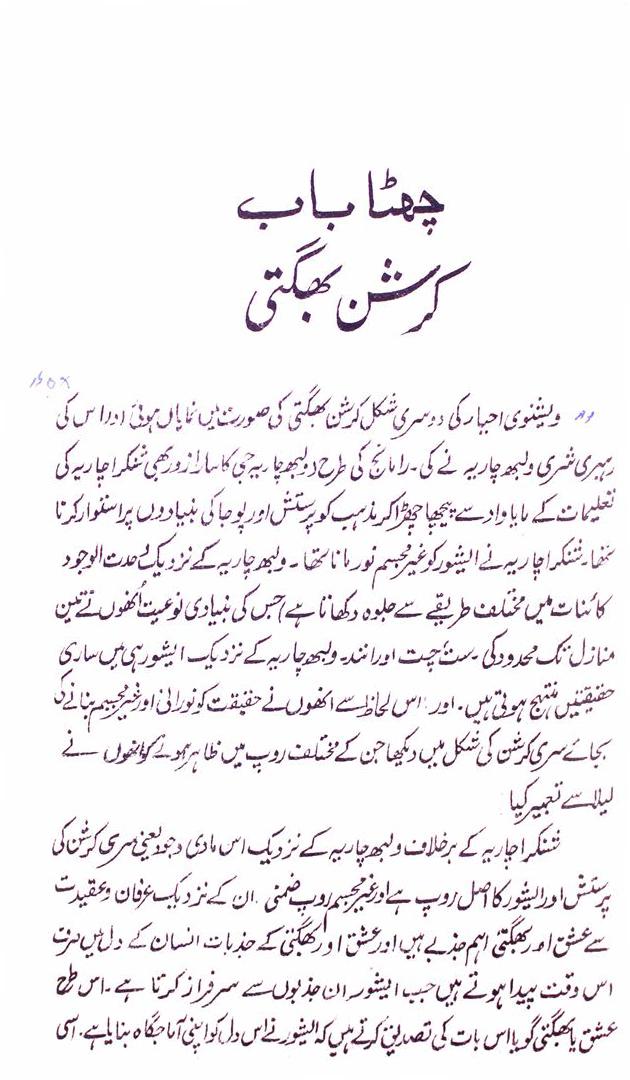 چھٹا باب
کرشن بھگتی
ویشنوی احیار کی دوسری شکل کرشن بھگتی کی صورت میں نمایاں ہوئی اور اس کی
رہبری شری ولبھ چاریہ نے کی۔ رامانج کی طرح ولبھ چاریہ جی کا سارا زور بھی شنکر اچاریہ کی
تعلیمات کے مایا واد سے پیچھا چھڑا کر مذہب کو پرستش اور پوجا کی بنیادوں پر استوار کرنا
تھا۔ شنکر اچاریہ نے ایشور کو غیر مجسم نور مانا تھا۔ ولبھ چاریہ کے نزدیک وحدت الوجود
کائنات میں مختلف طریقے سے جلوہ دکھاتا ہے (جس کی بنیادی نوعیت اُنھوں نے تین
منازل تک محدود کی۔ ست چت اور انند۔ ولبھ چاریہ کے نزدیک ایشور ہی میں ساری
حقیقتیں منتہج ہوتی ہیں۔ اور اس لحاظ سے انھوں نے حقیقت کو نورانی اور غیر مجسم بنانے کی
بجائے سری کرشن کی شکل میں دیکھا جن کے مختلف روپ میں ظاہر ہونے کو انھوں نے
لیلا سے تعبیر کیا
شنکر اچاریہ کے برخلاف ولبھ چاریہ کے نزدیک اس مادی وجود یعنی سری کرشن کی
پرستش اور ایشور کا اصل روپ ہے اور غیر مجسم روپ ضمنی۔ ان کے نزدیک عرفان و عقیدت
سے عشق اور بھگتی اہم جذبے ہیں اور عشق اور بھگتی کے جذبات انسان کے دل میں صرف
اس وقت پیدا ہوتے ہیں جب ایشور ان جذبوں سے سرفراز کرتا ہے۔ اس طرح
عشق یا بھگتی گویا اس بات کی تصدیق کرتے ہیں کہ ایشور نے اس دل کو اپنی آماجگاہ بنایا ہے۔ اسی